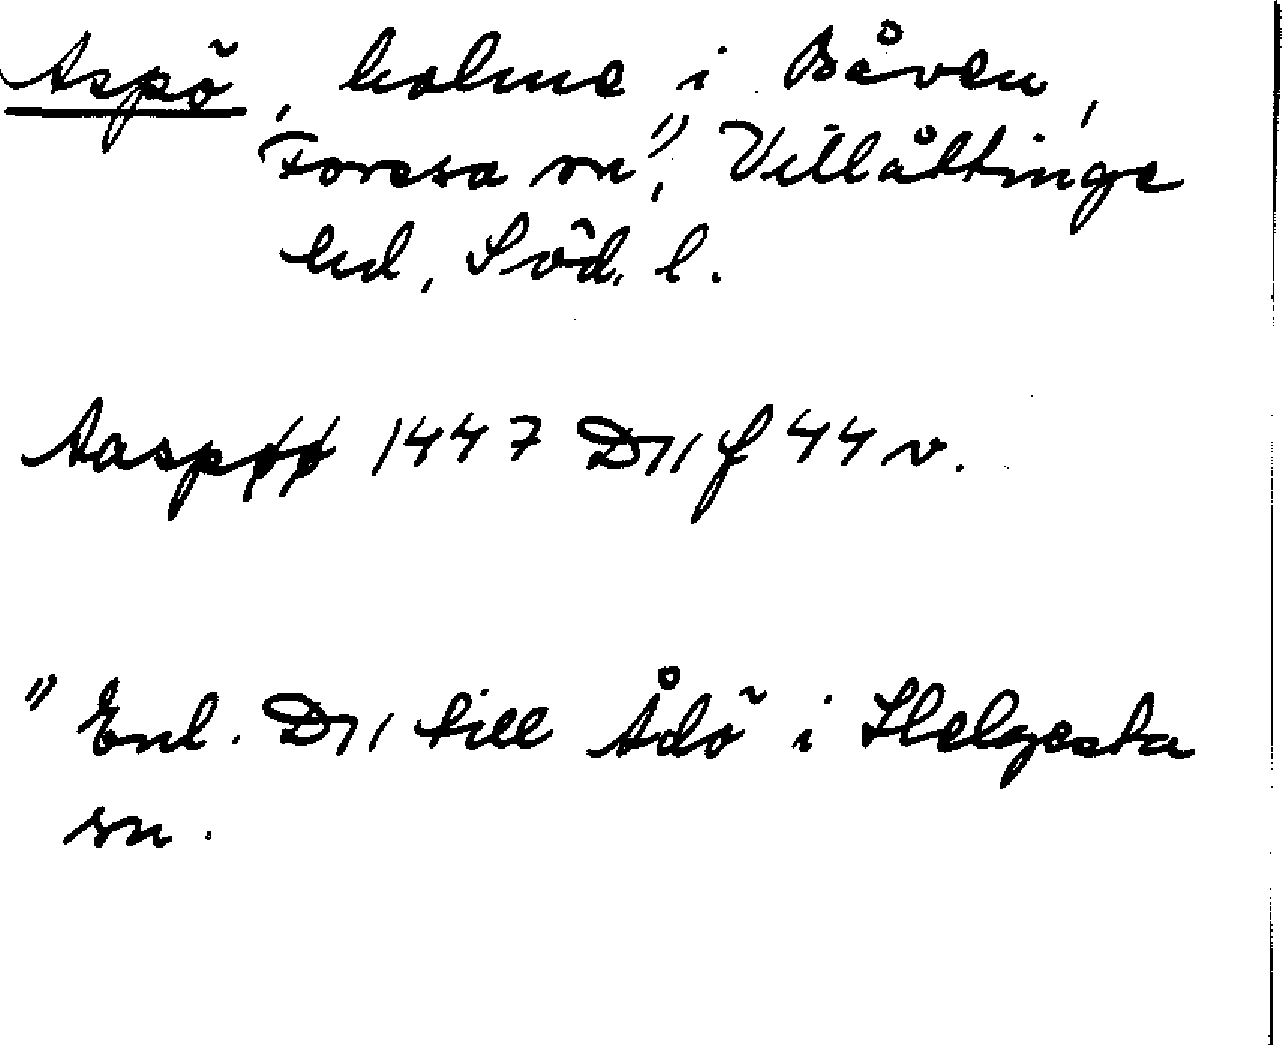 Aspö, holme i Båven,
Foresa sn", Villåttinge
hd, Söd. l.
Aaspøø 1447 D11 f 44 v.
" Enl. D11 till Ådö i Helgesta
sn.